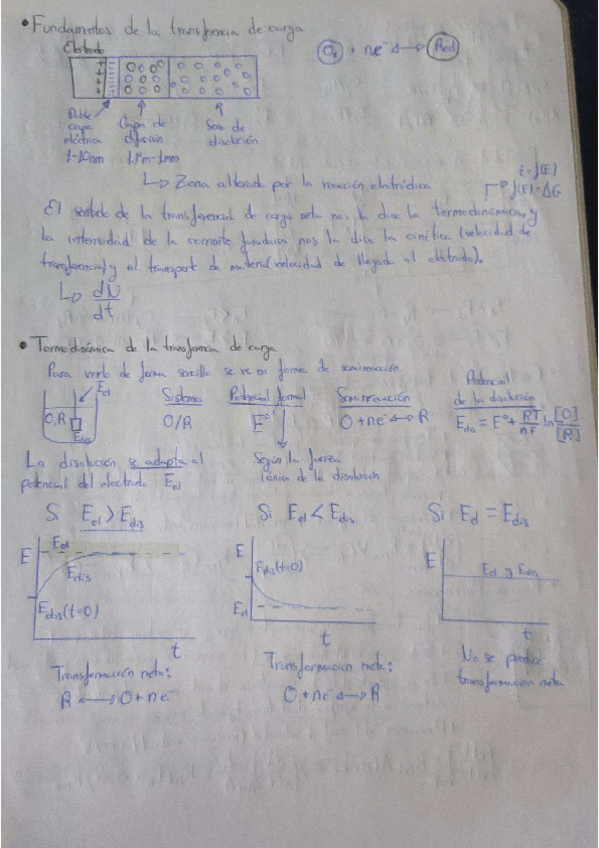 • Fundamentos de la transferencia de carga
Electrodo
Ox + ne⁻ ↔ Red
Doble capa eléctrica 1-10nm
Capa de difusión 1μm-1mm
Seno de disolución
i = f(E)
↳ Zona alterada por la reacción eletródica
f(E)=ΔG
El sentido de la transferencia de carga neta nos la dice la termodinámica, y
la intensidad de la corriente faradaica nos la dice la cinética (velocidad de
transferencia) y el transport de materia (velocidad de llegada al eletrodo).
↳ dN/dt
• Termodinámica de la transferencia de carga
Para verlo de forma sencilla se ve en forma de semirreación
Eel
O,R
Edis
Sistema
O/R
Potencial formal
E°'
Semirreacción
O + ne⁻ ↔ R
Potencial de la disolución
Edis = E°' + RT/nF ln [O]/[R]
La disolución se adapta al
potencial del electrodo Eel
Según la fuerza
iónica de la disolución
Si Eel > Edis
Si Eel < Edis
Si Eel = Edis
E
Eel
Edis
Edis(t=0)
t
E
Edis(t=0)
Eel
t
E
Eel y Edis
t
Transformación neta:
R ↔ O + ne⁻
Transformación neta:
O + ne⁻ ↔ R
No se produce
transformación neta